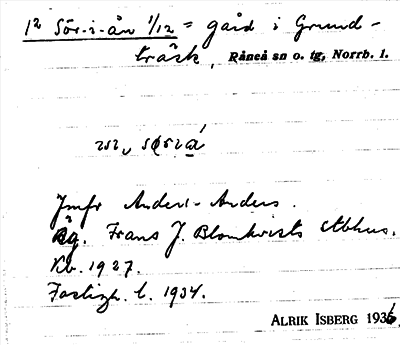 1² Sör-i-ån 1/12 = gård i Grund-
träsk, Råneå sn o. tg, Norrb. l.
Jmfr Anders-Anders.
Äg. Frans J. Blomkvists stbhus.
Kb. 1927.
Fastigh. l. 1934.
ALRIK ISBERG 1936